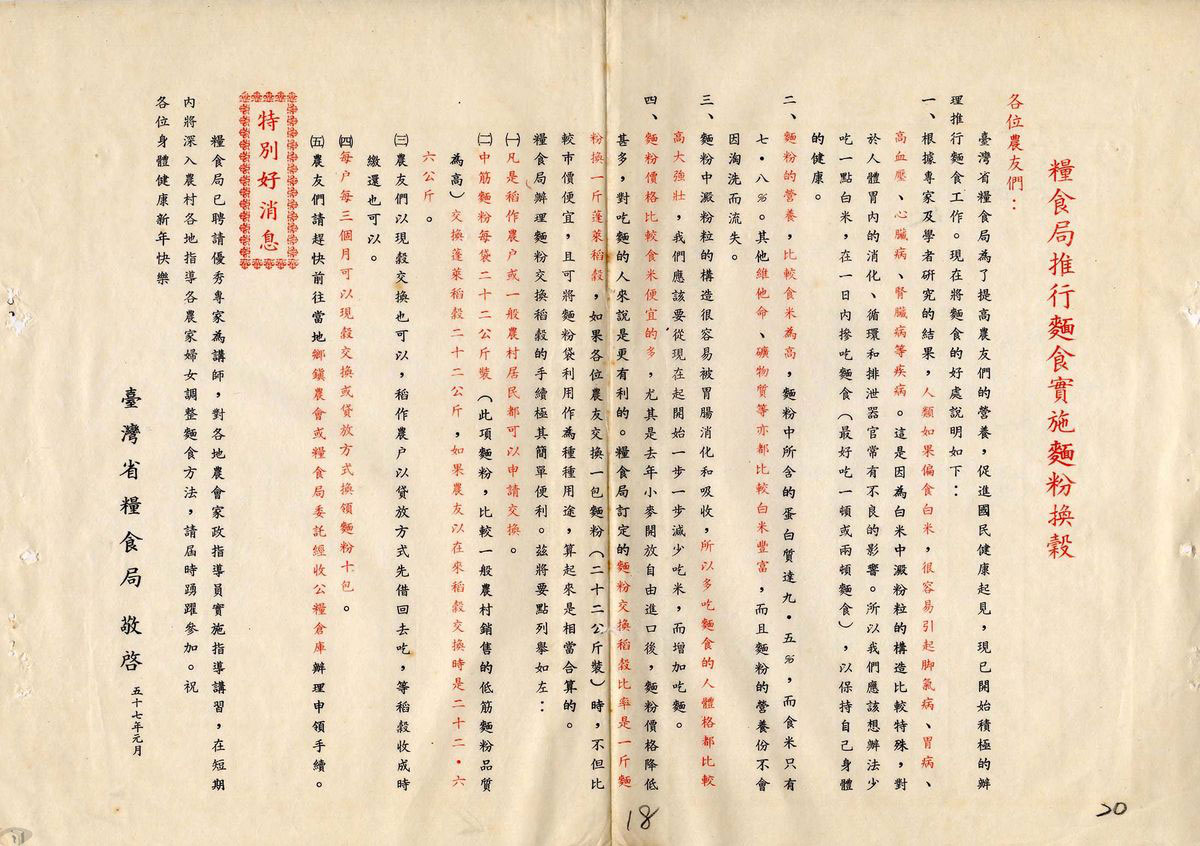 糧食局推行麵食實施麵粉換穀
各位農友們：
臺灣省糧食局為了提高農友們的營養，促進國民健康起見，現已開始積極的辦
理推行麵食工作。現在將麵食的好處說明如下：
一、根據專家及學者研究的結果，人類如果偏食白米，很容易引起脚氣病、胃病、
高血壓、心臟病、腎臟病等疾病。這是因為白米中澱粉粒的構造比較特殊，對
於人體胃內的消化、循環和排泄器官常有不良的影響。所以我們應該想辦法少
吃一點白米，在一日內摻吃麵食（最好吃一頓或兩頓麵食），以保持自己身體
的健康。
二、麵粉的營養，比較食米為高，麵粉中所含的蛋白質達九・五％，而食米只有
七・八％。其他維他命、礦物質等亦都比較白米豐富，而且麵粉的營養份不會
因淘洗而流失。
三、麵粉中澱粉粒的構造很容易被胃腸消化和吸收，所以多吃麵食的人體格都比較
高大強壯，我們應該要從現在起開始一步一步減少吃米，而增加吃麵。
四、麵粉價格比較食米便宜的多，尤其是去年小麥開放自由進口後，麵粉價格降低
甚多，對吃麵的人來說是更有利的。糧食局訂定的麵粉交換稻穀比率是一斤麵
粉換一斤蓬萊稻穀，如果各位農友交換一包麵粉（二十二公斤裝）時，不但比
較市價便宜，且可將麵粉袋利用作為種種用途，算起來是相當合算的。
糧食局辦理麵粉交換稻穀的手續極其簡單便利。茲將要點列舉如左：
㈠凡是稻作農户或一般農村居民都可以申請交換。
㈡中筋麵粉每袋二十二公斤裝（此項麵粉，比較一般農村銷售的低筋麵粉品質
為高）交換蓬萊稻穀二十二公斤，如果農友以在來稻穀交換時是二十二・六
六公斤。
㈢農友們以現穀交換也可以，稻作農户以貸放方式先借回去吃，等稻穀收成時
繳還也可以。
㈣每户每三個月可以現穀交換或貸放方式換領麵粉十包。
㈤農友們請趕快前往當地鄉鎮農會或糧食局委託經收公糧倉庫辦理申領手續。
特別好消息
糧食局已聘請優秀專家為講師，對各地農會家政指導員實施指導講習，在短期
內將深入農村各地指導各農家婦女調整麵食方法，請屆時踴躍參加。祝
各位身體健康新年快樂
臺灣省糧食局 敬啓 五十七年元月
18
20